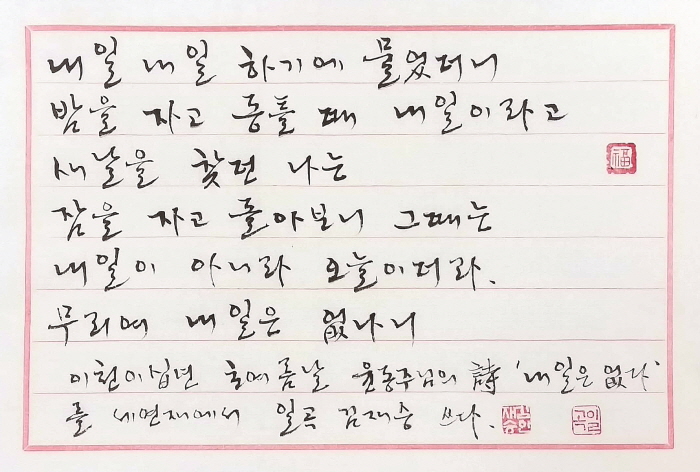 내일 내일 하기에 물었더니
밤을 자고 동틀 때 내일이라고
새날을 찾던 나는
福
잠을 자고 돌아보니 그때는
내일이 아니라 오늘이더라.
무리여 내일은 없나니
이천이십년 초여름날 윤동주님의 詩 '내일은 없다'
를 세연재에서 일곡 김재승 쓰다.